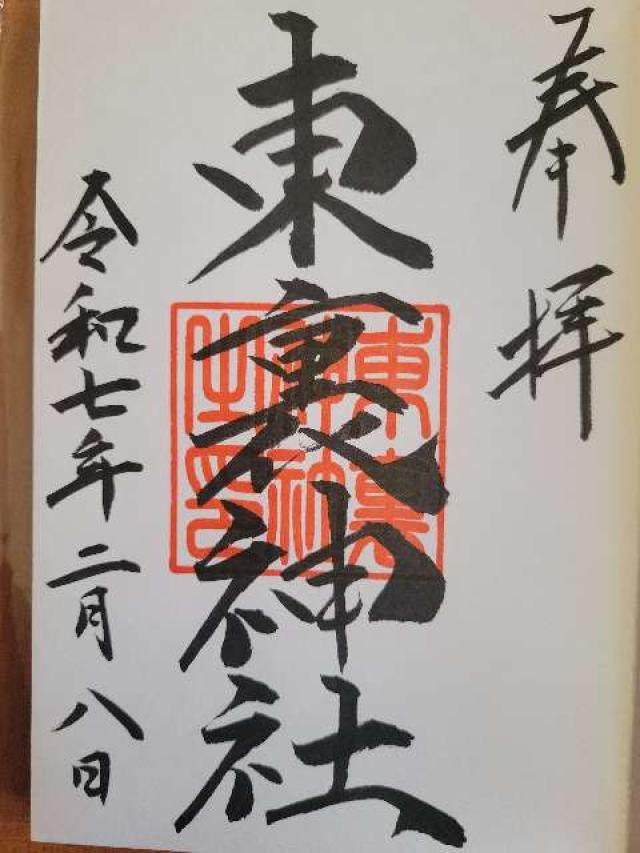 奉拝
東裏神社
東裏神社之印
令和七年二月八日